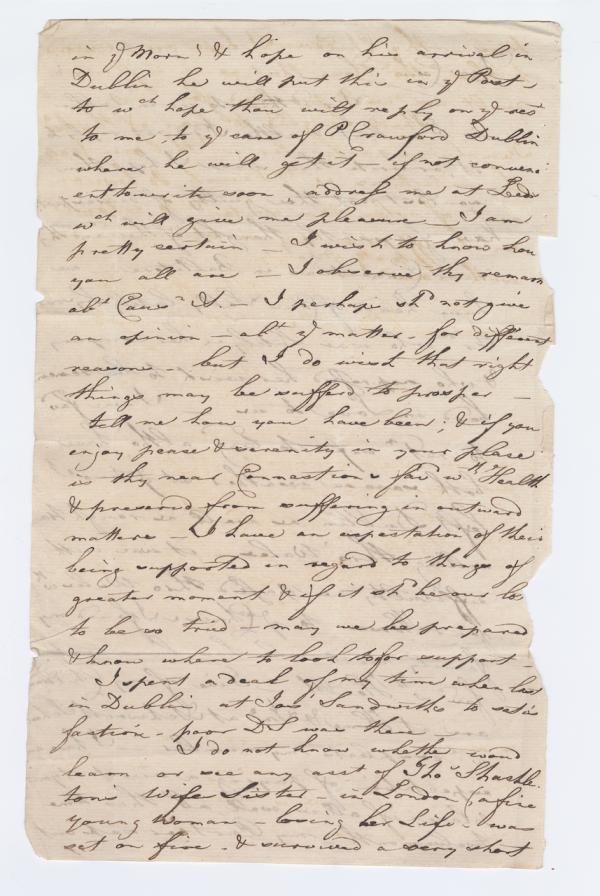 in ye Morng & hope on his arrival in
Dublin he will put this in ye Post,
to wch hope thou will reply on ye
to me, to ye care of P Crawford Dublin
where he will get it - if not conveni
ent to write soon address me at
wch will give me pleasure - I am
pretty certain - I wish to know how
you all are - I observe thy remark
abt - I perhaps shd not give
an opinion - abt ye matter - for different
reasons - but I do wish that right
things may be sufferd to prosper -
tell me how you have been; & if you
enjoy peace & serenity in your place
is thy near Connections fav wth Health
& preserved from suffering in outward
matters - I have an expectation of their
being supported in regard to things of
greater moment & if it shd be our lot
to be so tried - may we be prepared
& know where to look to for support -
I spent a deal of my time when last
in Dublin at Jas Sandwiths to satis
faction - poor DS was there
I do not know whether woud
learn or see any acct of Thos Shackle
tons Wifes Sister - in London (a fine
young Woman - losing her Life - was
set on fire - & survived a very short